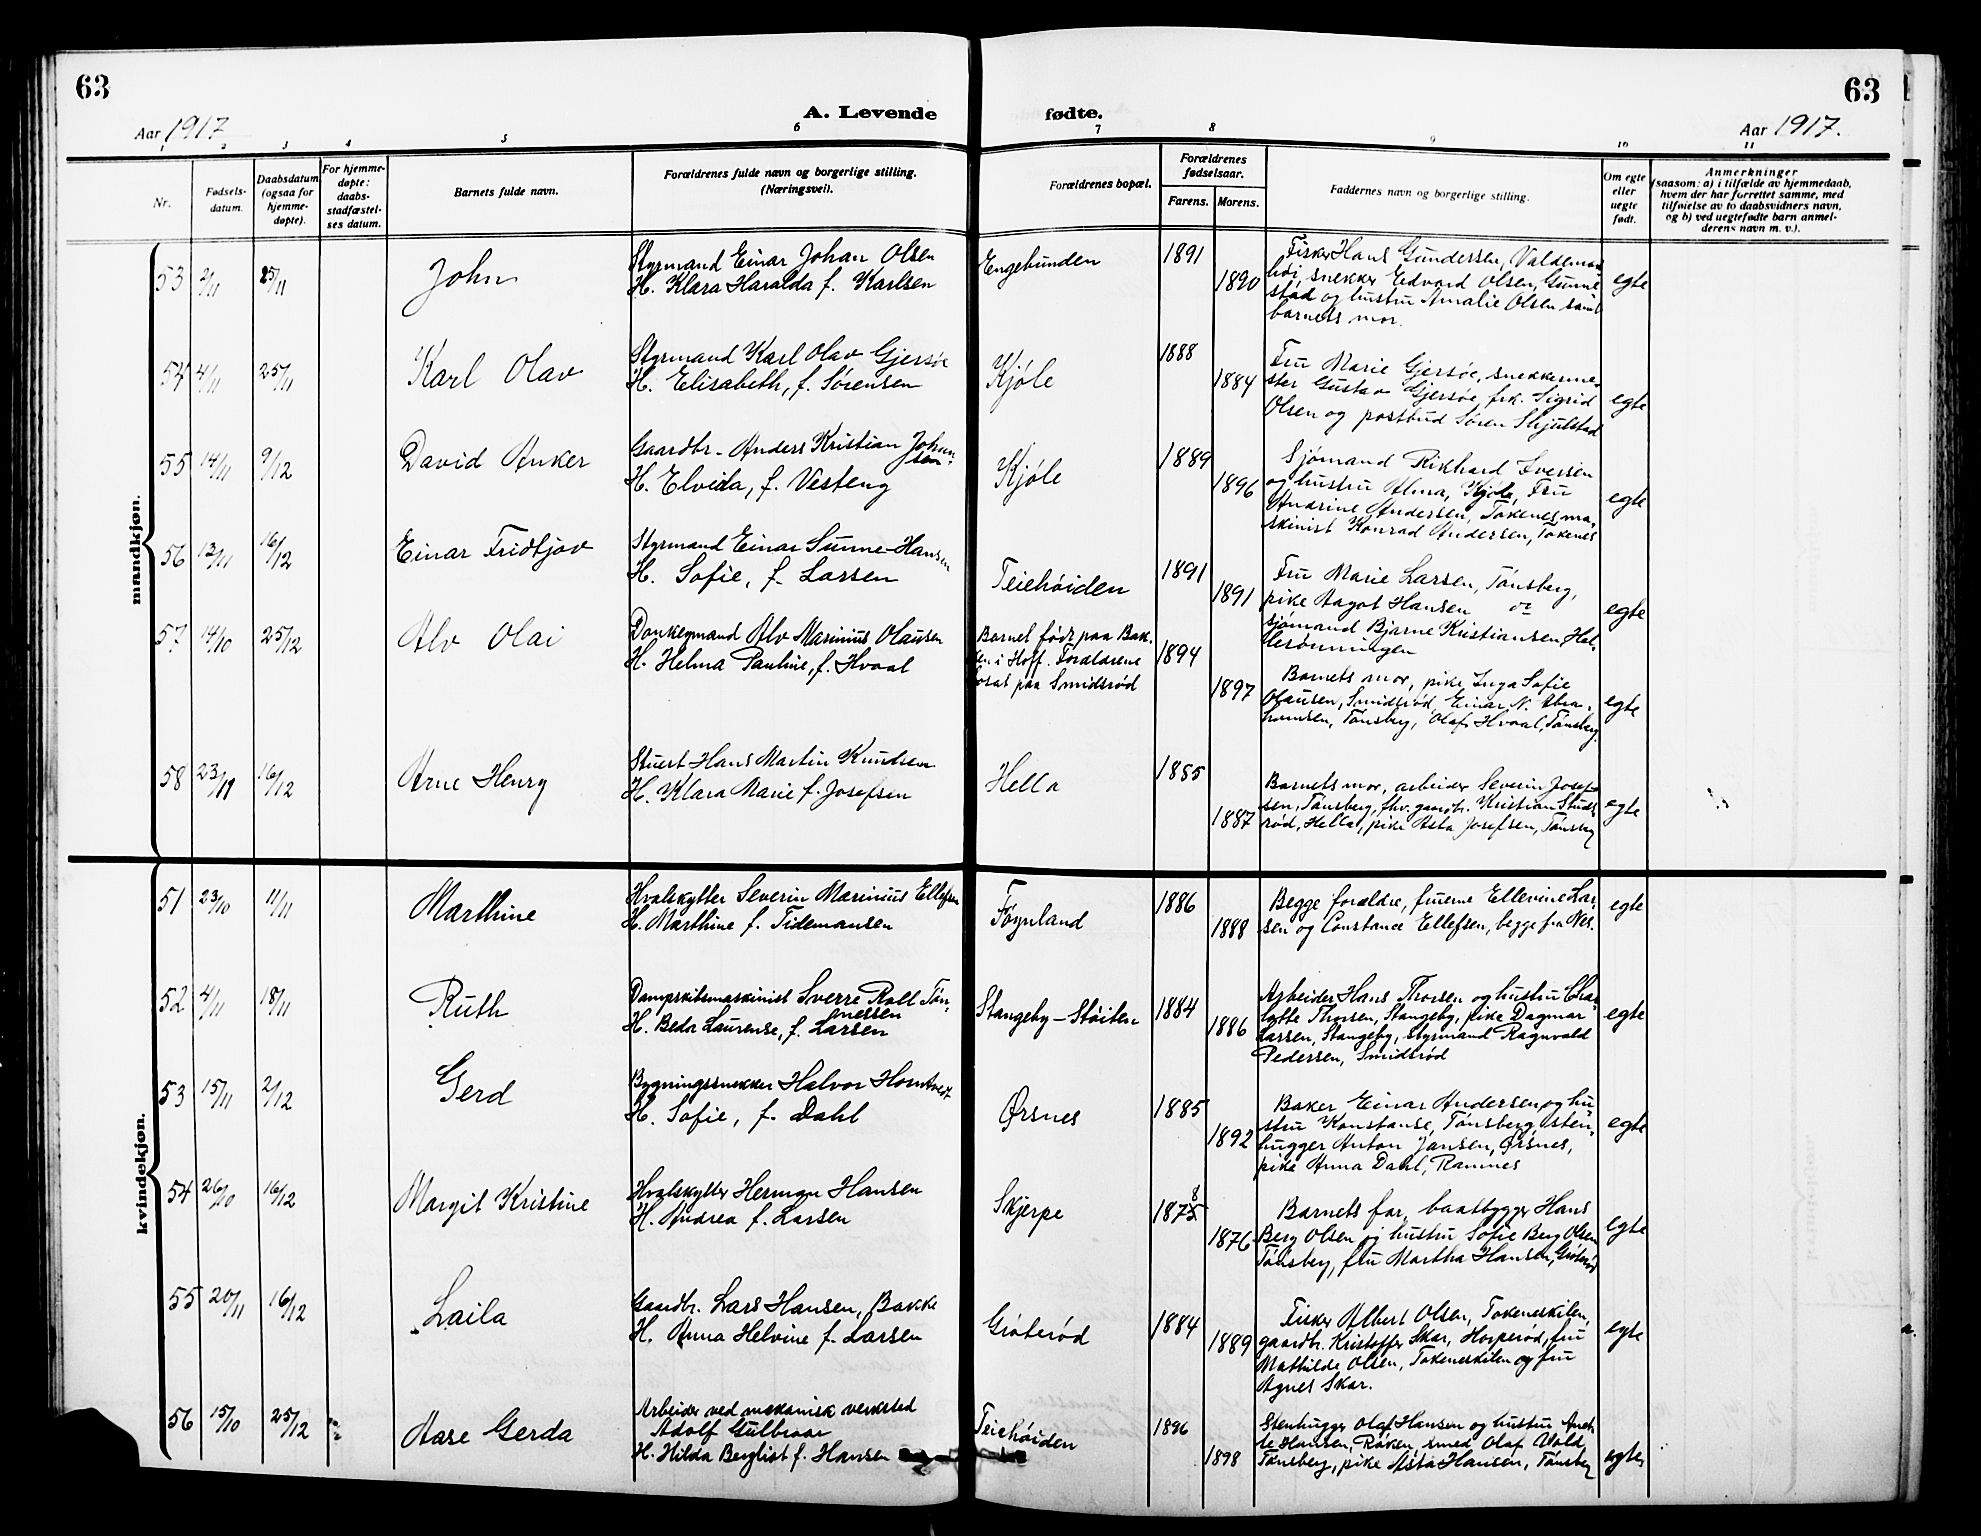 63
63
Aar 1917
A. Levende
fødte.
Aar 1917.
1 2 3 4 5 6 7 8 9 10 11
Nr.
Fødsels-
datum.
Daabsdatum
(ogsaa for
hjemme-
døpte).
For hjemme-
døpte:
daabs-
stadfæstel-
ses datum.
Barnets fulde navn.
Forældrenes fulde navn og borgerlige stilling.
(Næringsvei).
Forældrenes bopæl.
Forældrenes
fødselsaar.
Farens. Morens.
Faddernes navn og borgerlige stilling.
Om egte
eller
uegte
født.
Anmerkninger
(saasom: a) i tilfælde av hjemmedaab,
hvem der har forrettet samme, med
tilføielse av to daabsvidners navn,
og b) ved uegtefødte barn anmel-
derens navn m. v.).
mandkjøn.
53 2/11 25/11 John
Styrmand Einar Johan Olsen
H. Klara Haralda f. Karlsen
Engebunden 1891 1890
Fisker Hans Gundersen, Valdemar-
høi, snekker Edvard Olsen, Gunne-
stad og hustru Amalie Olsen samt
barnets mor.
egte
54 4/11 25/11 Karl Olav
Styrmand Karl Olav Gjersøe
H. Elisabeth, f. Sørensen
Kjøle 1888 1884
Fru Marie Gjersøe, snekkerme-
ster Gustav Gjersøe, frk. Sigrid
Olsen og postbud Søren Skjulstad
egte
55 14/11 9/12 David Anker
Gaardbr. Anders Kristian Johan-
sen
H. Elvida, f. Vesteng
Kjøle 1889 1896
Sjømand Rikhard Iversen
og hustru Alma, Kjøle, Fru
Andrine Andersen, Tokenes, ma-
skinist Konrad Andersen, Tokenes
egte
56 13/11 16/12 Einar Fridtjov
Styrmand Einar Sunne-Hansen
H. Sofie, f. Larsen
Teiehøiden 1891 1891
Fru Marie Larsen, Tønsberg,
pike Aagot Hansen
sjømand Bjarne Kristiansen, Hel-
lerønningen
egte
57 14/10 25/12 Alv Olai
Donkeymand Alv Marinius Olausen
H. Helma Pauline, f. Hvaal
Barnet født paa Bak-
ken i Hoff. Forældrene
bosat paa Smidsrød
1894 1897
Barnets mor, pike Inga Sofie
Olausen, Smidsrød, Einar N. Abra-
hamsen, Tønsberg, Olaf Hvaal, Tønsberg.
egte
58 23/11 16/12 Arne Henry
Stuert Hans Martin Knudsen
H. Klara Marie f. Josefsen
Hella 1885 1887
Barnets mor, arbeider Severin Josef-
sen, Tønsberg, fhv. gaardbr. Kristian Studs-
rød, Hella, pike Asta Josefsen, Tønsberg
egte
kvindekjøn.
51 23/10 11/11 Marthine
Hvalskytter Severin Marinius Ellefsen
H. Marthine f. Tidemansen
Føynland 1886 1888
Begge forældre, fruerne Ellevine Lar-
sen og Constance Ellefsen, begge fra Nes.
egte
52 4/11 18/11 Ruth
Dampskibsmaskinist Sverre Rolf Tøn-
nessen
H. Beda Laurense, f. Larsen
Stangeby-Støiten 1884 1886
Arbeider Hans Thorsen og hustru Char-
lotte Thorsen, Stangeby, pike Dagmar
Larsen, Stangeby, Styrmand Ragnvald
Pedersen, Smidsrød
egte
53 15/11 2/12 Gerd
Bygningssnekker Halvor Horntvedt
H. Sofie, f. Dahl
Ørsnes 1885 1892
Baker Einar Andersen og hu-
stru Konstanse, Tønsberg, sten-
hugger Anton Jansen, Ørsnes,
pike Anna Dahl, Ramnes
egte
54 26/10 16/12 Margit Kristine
Hvalskytter Herman Hansen
H. Andrea f. Larsen
Skjerpe 1878 1876
Barnets far, baatbygger Hans
Berg Olsen og hustru Sofie Berg Olsen
Tønsberg, fru Martha Hansen, Grøterød
egte
55 20/11 16/12 Laila
Gaardbr. Lars Hansen, Bakke
H. Anna Helvine f. Larsen
Grøterød 1884 1889
Fisker Albert Olsen, Tokeneskilen,
gaardbr. Kristoffer Skar, Horperød, fru
Mathilde Olsen, Tokeneskilen og fru
Agnes Skar.
egte
56 15/10 25/12 Aase Gerda
Arbeider ved mekanisk verksted
Adolf Gulbraar
H. Hilda Bergliot f. Hansen
Teiehøiden 1896 1898
Stenhugger Olaf Hansen og hustru
Hansen, Røken, smed Olaf Wold,
Tønsberg, pike Asta Hansen, Tønsberg
egte